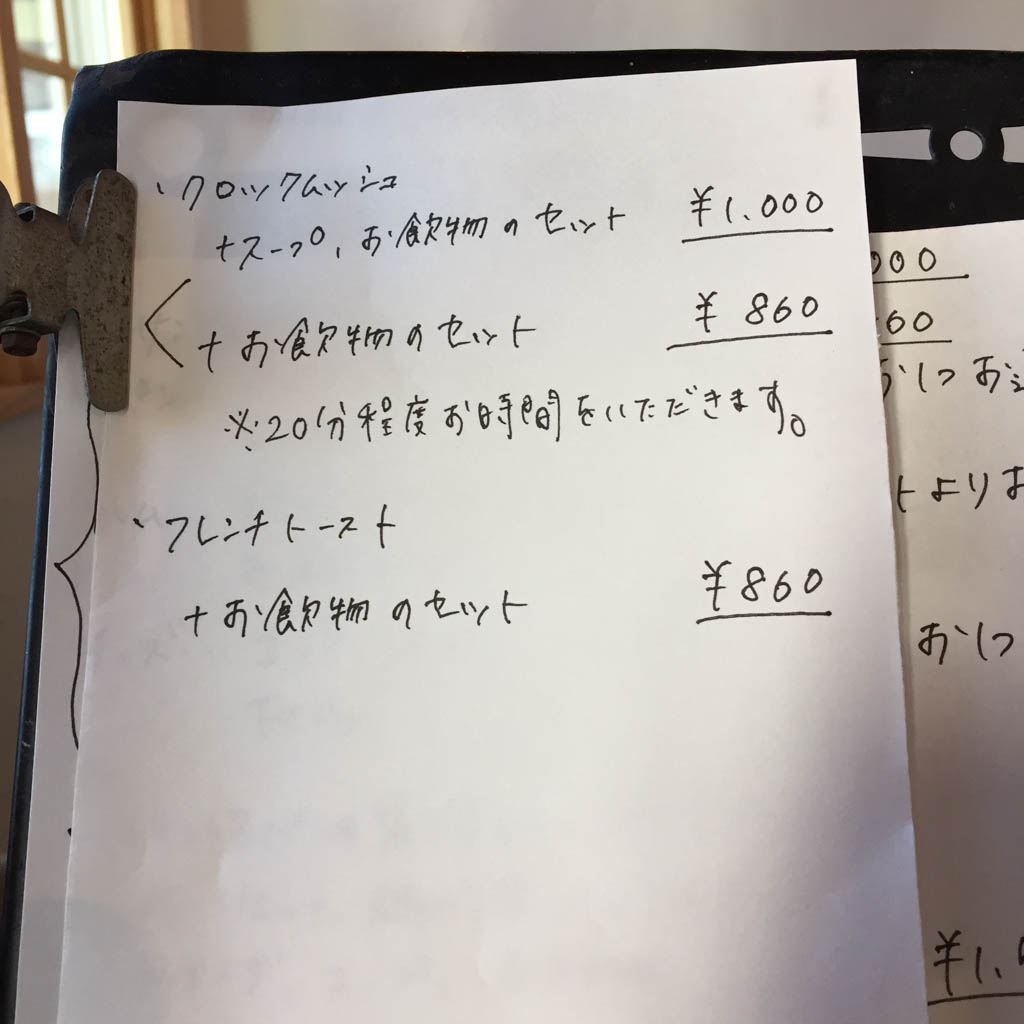 ・クロックムッシュ
+スープ、お飲物のセット ¥1.000
+お飲物のセット ¥860
※20分程度お時間をいただきます。
・フレンチトースト
+お飲物のセット ¥860
000
60
おしつ お
トよりお
おしつ
¥1.